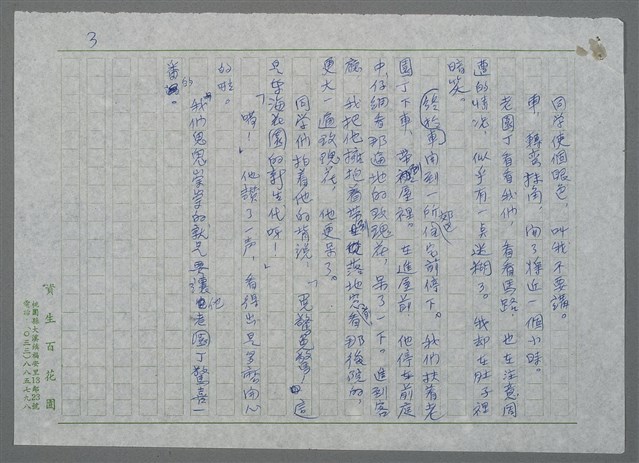 3
同學使個眼色,叫我不要講。
車,轉彎抹角,開了將近一個小時。
老園丁看看我們,看看馬路,也在注意周
遭的情況,似乎有一點迷糊了。我却在肚子裡
暗笑。
終於車開到一所住宅前停下。我們扶着老
園丁下車,帶到屋裡。在進屋前,他停在前庭
中,仔細看那遍地的玫瑰花,呆了一下。進到客
廳,我把他擁抱着落地窗看那後院的,
更大一遍玫瑰花,他更呆了。
同學們拍着他的肩說:「
這
只是海花園的新生代呀!」
「嗬!」他讚了一声,看得出是多麼開心
的啦。
我們鬼鬼祟祟的就只要讓他老園丁驚喜一
番。
寶生百花園
桃園縣大溪鎮福安里13鄰23號
電話:(〇三三)八八三五七九八